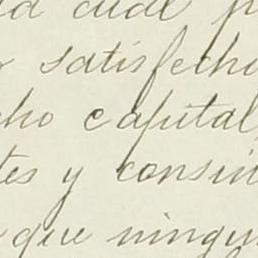 la cual p
satisfecho
cho capital
tes y consin
que ningu